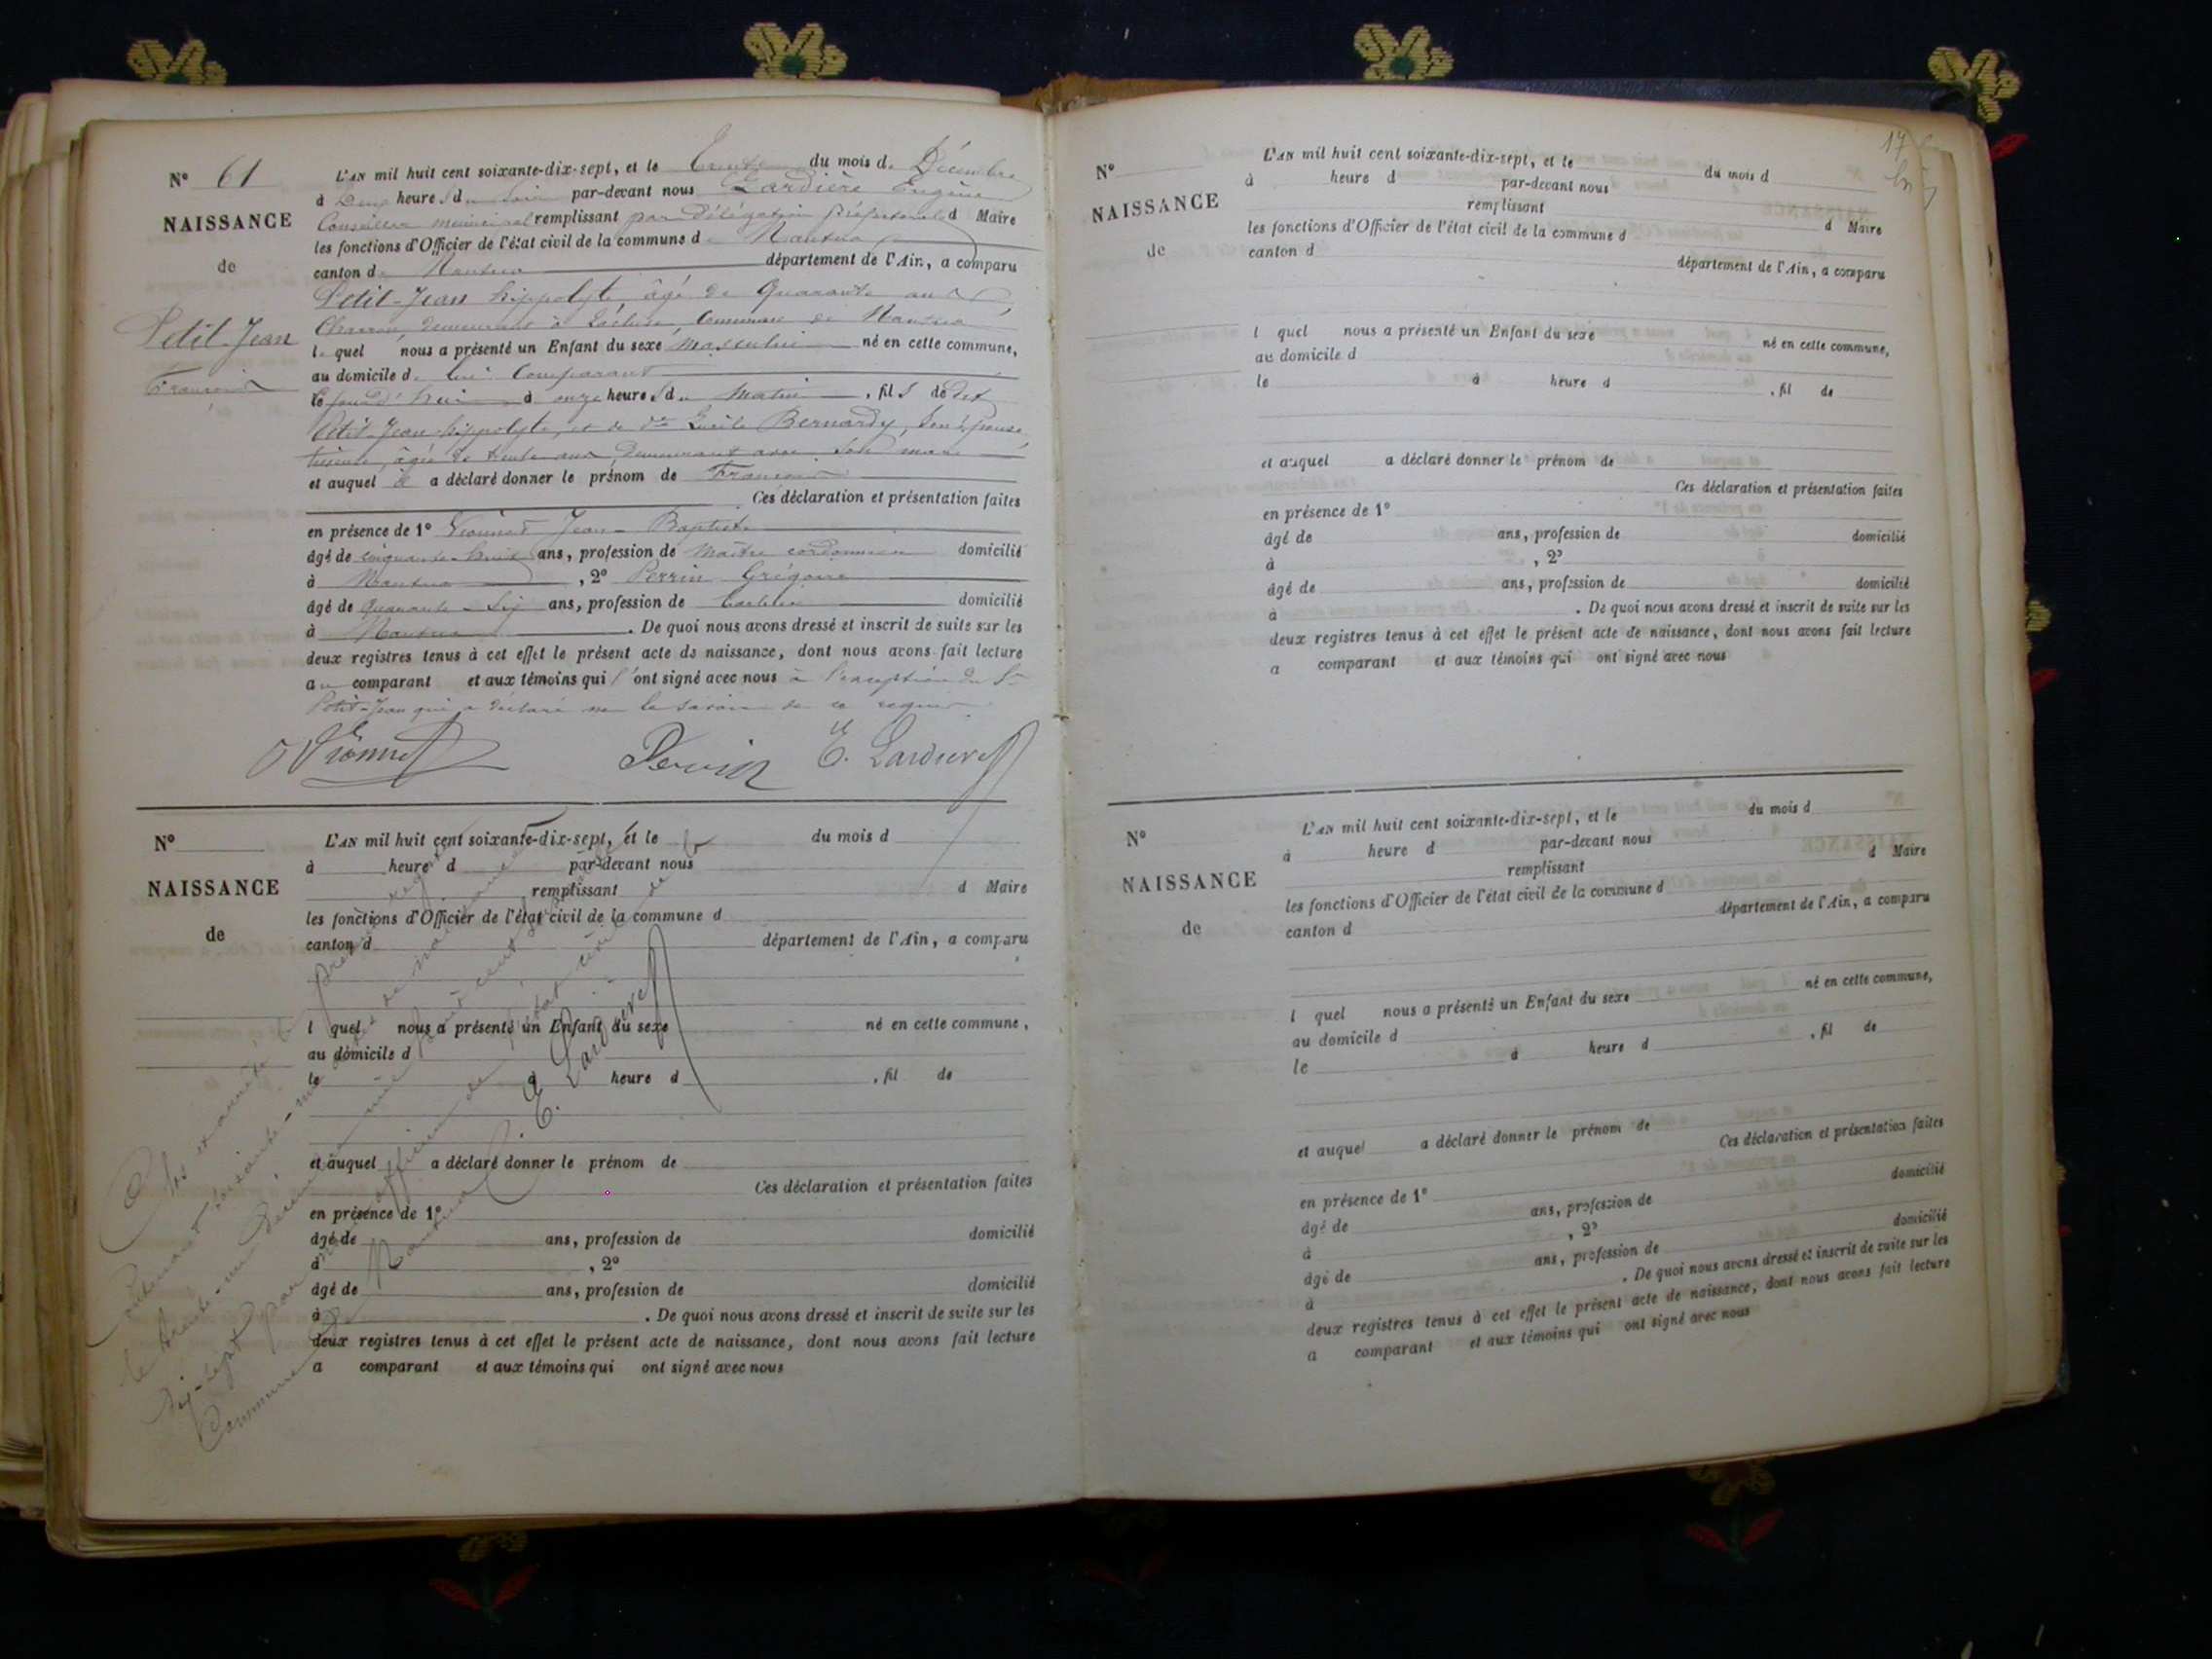 N° 61
NAISSANCE
de
Petit-Jean
François
L'AN mil huit cent soixante-dix-sept, et le Trente du mois de Décembre
à Deux heures du Soir par-devant nous Lardière Eugène
Conseiller municipal remplissant par délégation préfectorale d Maire
les fonctions d'Officier de l'état civil de la commune de Nantua
canton de Nantua département de l'Ain, a comparu
Petit-Jean hippolyte, âgé de Quarante ans
Charron, demeurant à Commune de Nantua
le quel nous a présenté un Enfant du sexe masculin né en cette commune,
au domicile de lui Comparant
le jourd'hui à onze heures du Matin, fils de dit
Petit-Jean hippolyte, et de dme Lucile Bernardy, son épouse
âgée de trente ans, demeurant avec son mari
et auquel il a déclaré donner le prénom de François
Ces déclaration et présentation faites
en présence de 1° Vionnet Jean-Baptiste
âgé de cinquante-huit ans, profession de Maître cordonnier domicilié
à Nantua, 2° Perrin Grégoire
âgé de Quarante-Six ans, profession de domicilié
à Nantua. De quoi nous avons dressé et inscrit de suite sur les
deux registres tenus à cet effet le présent acte de naissance, dont nous avons fait lecture
au comparant et aux témoins qui l'ont signé avec nous à l'exception du Sr
Petit-Jean qui a déclaré ne le savoir de ce requis
Vionnet Perrin E. Lardière
N°
NAISSANCE
de
L'AN mil huit cent soixante-dix-sept, et le du mois d
à heure d par-devant nous
remplissant d Maire
les fonctions d'Officier de l'état civil de la commune d
canton d département de l'Ain, a comparu
l quel nous a présenté un Enfant du sexe né en cette commune,
au domicile d
le à heure d , fil de
et auquel a déclaré donner le prénom de
Ces déclaration et présentation faites
en présence de 1°
âgé de ans, profession de domicilié
à , 2°
âgé de ans, profession de domicilié
à . De quoi nous avons dressé et inscrit de suite sur les
deux registres tenus à cet effet le présent acte de naissance, dont nous avons fait lecture
a comparant et aux témoins qui ont signé avec nous
Clos et arrêté le présent registre
Contenant soixante-un actes de naissance
le trente-un Décembre mil huit cent soixante
dix-sept par nous officier de l'état civil de la
Commune de Nantua
E. Lardière
17
bis
N°
NAISSANCE
de
L'AN mil huit cent soixante-dix-sept, et le du mois d
à heure d par-devant nous
remplissant d Maire
les fonctions d'Officier de l'état civil de la commune d
canton d département de l'Ain, a comparu
l quel nous a présenté un Enfant du sexe né en cette commune,
au domicile d
le à heure d , fil de
et auquel a déclaré donner le prénom de
Ces déclaration et présentation faites
en présence de 1°
âgé de ans, profession de domicilié
à , 2°
âgé de ans, profession de domicilié
à . De quoi nous avons dressé et inscrit de suite sur les
deux registres tenus à cet effet le présent acte de naissance, dont nous avons fait lecture
a comparant et aux témoins qui ont signé avec nous
N°
NAISSANCE
de
L'AN mil huit cent soixante-dix-sept, et le du mois d
à heure d par-devant nous
remplissant d Maire
les fonctions d'Officier de l'état civil de la commune d
canton d département de l'Ain, a comparu
l quel nous a présenté un Enfant du sexe né en cette commune,
au domicile d
le à heure d , fil de
et auquel a déclaré donner le prénom de
Ces déclaration et présentation faites
en présence de 1°
âgé de ans, profession de domicilié
à , 2°
âgé de ans, profession de domicilié
à . De quoi nous avons dressé et inscrit de suite sur les
deux registres tenus à cet effet le présent acte de naissance, dont nous avons fait lecture
a comparant et aux témoins qui ont signé avec nous